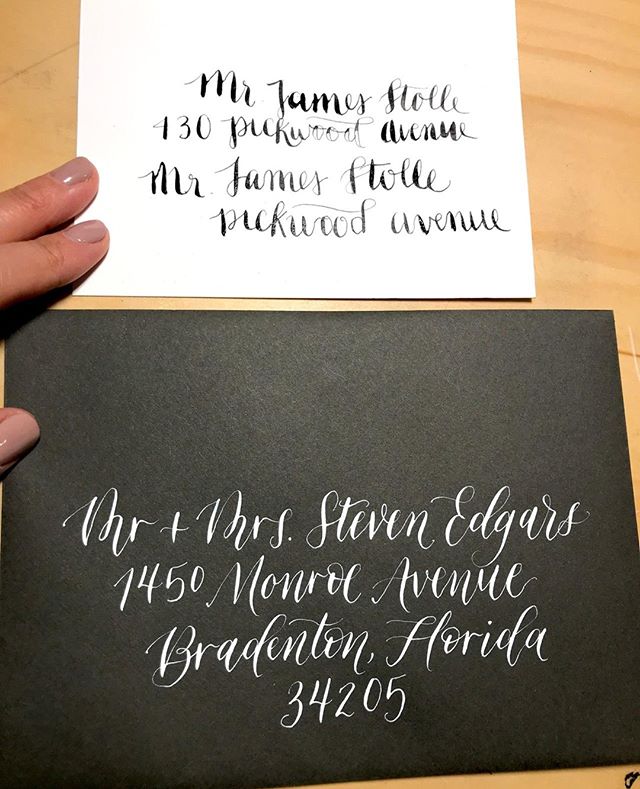 Mr. James Stolle
130 pickwood avenue
Mr. James Stolle
pickwood avenue
Mr + Mrs. Steven Edgars
1450 Monroe Avenue
Bradenton, Florida
34205